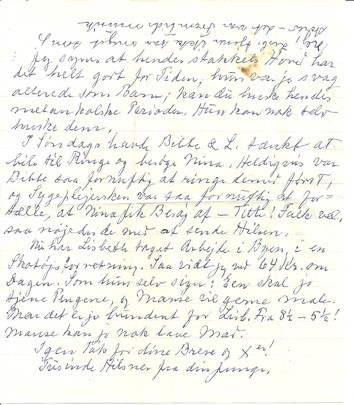 Jeg synes at hendes stakkels Hoved har
det helt gort for Tiden, hun var jo svag
allerede som Barn, kan du huske hendes
melankolske Perioder. Hun kan nok selv
huske dem.
I Søndags havde Bitte & L. tænkt at
bile til Ringe og besøge Nina. Heldigvis var
Bitte saa fornuftig at ringe derned først,
og Sygeplejersken var saa fornuftig at for-
tælle, at Nina fik Besøg af – Titti! Tak vel,
saa nøjedes de med at sende Hilsen.
Nu har Lisbeth taget Arbejde i Byen, i en
Skotøjsforretning. Saa vidt jeg ved 64 Kr. om
Dagen. Som hun selv siger: Een skal jo
tjene Pengene, og Manse vil gerne male.
Men det er jo bundent for Lisb. Fra 8½ – 5½!
Manse kan jo nok lave Mad.
Igen Tak for dine Breve og X er!
Tusinde Hilsner fra din